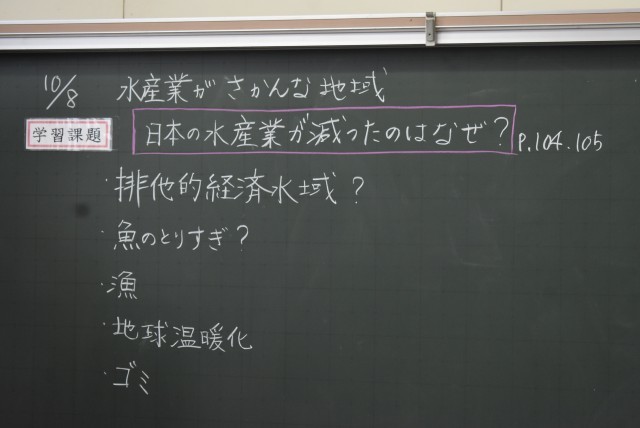 10/8 水産業がさかんな地域
学習課題 日本の水産業が減ったのはなぜ? P.104.105
・排他的経済水域?
・魚のとりすぎ?
・漁
・地球温暖化
・ゴミ